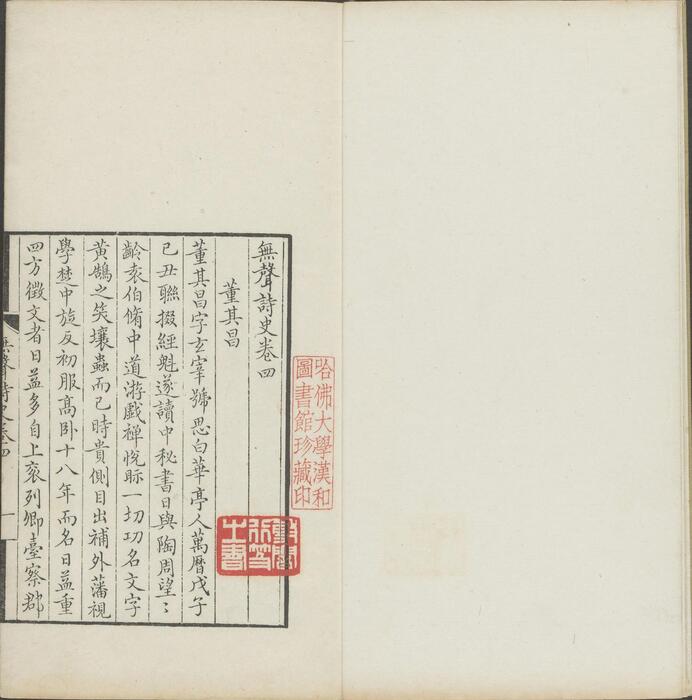 哈佛大學漢和
圖書館珍藏印
無聲詩史卷四
董其昌
董其昌字玄宰號思白華亭人萬曆戊子
已丑聯掇經魁遂讀中秘書日與陶周望〻
齡袁伯脩中道游戲禅悅眎一切功名文字
黃鵠之笑壤蟲而已時貴側目出補外藩視
學楚中旋反初服高卧十八年而名日益重
四方徵文者日益多自上袞列卿臺察郡
無聲詩史卷四
一